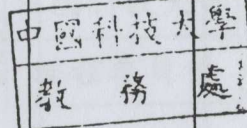 中國科技大學
教務處